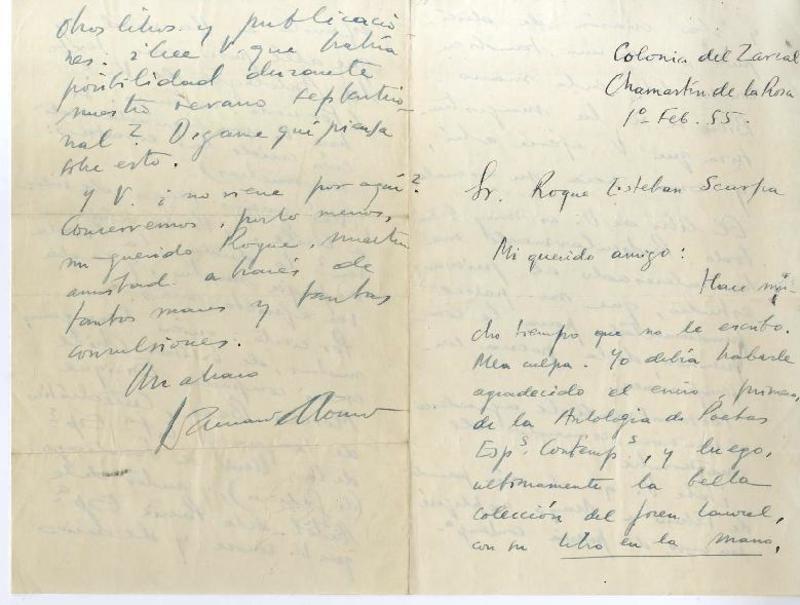 Colonia del Zarzal
Chamartín de la Rosa
1º Feb. 55.
Sr. Roque Esteban Scarpa
Mi querido amigo:
Hace mu-
cho tiempo que no le escribo.
Mea culpa. Yo debía haberle
agradecido el envío, primero,
de la Antología de Poetas
Espˢ. Contempˢ, y luego,
ultimamente la bella
colección del joven laurel,
con su libro en la mano,
otros libros y publicacio
nes. ¿Cree V. que habría
posibilidad durante
nuestro verano septentrio-
nal? Dígame qué piensa
sobre esto.
Y V. ¿no viene por aquí?
Conservemos, por lo menos,
mi querido Roque, nuestra
amistad a través de
tantos mares y tantas
convulsiones.
Un abrazo
Dámaso Alonso